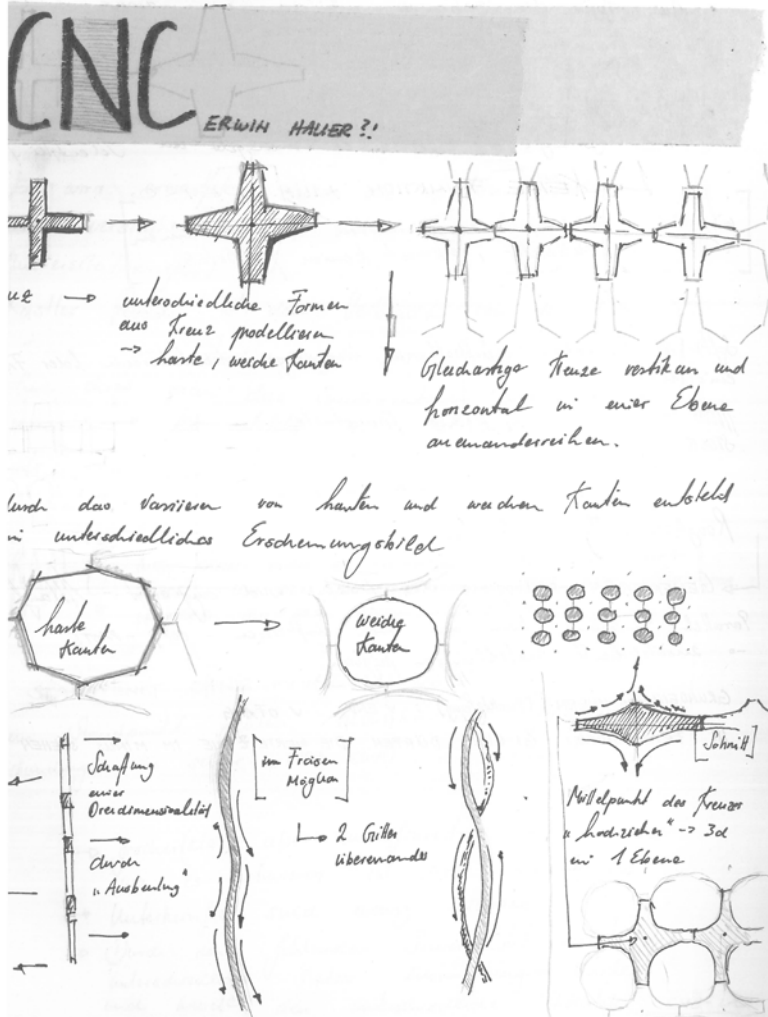 CNC
ERWIN HAUER?!
uz → unterschiedliche Formen
aus Kreuz modellieren
-> harte, weiche Kanten
Gleichartige Kreuze vertikan und
horizontal in einer Ebene
aneinanderreihen.
durch das Variieren von harten und weichen Kanten entsteht
in unterschiedliches Erscheinungsbild
harte
Kanten
weiche
Kanten
Schaffung
einer
Dreidimensionalität
durch
"Ausbeulung"
im Fräsen
Möglich
2 Gitter
übereinander
Schnitt
Mittelpunkt des Kreuzes
"hochziehen" -> 3d
in 1 Ebene